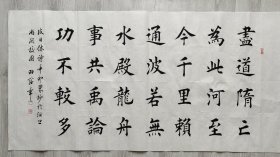 盡道隋亡
為此河至
今千里賴
通波若無
水殿龍舟
事共禹論
功不較多